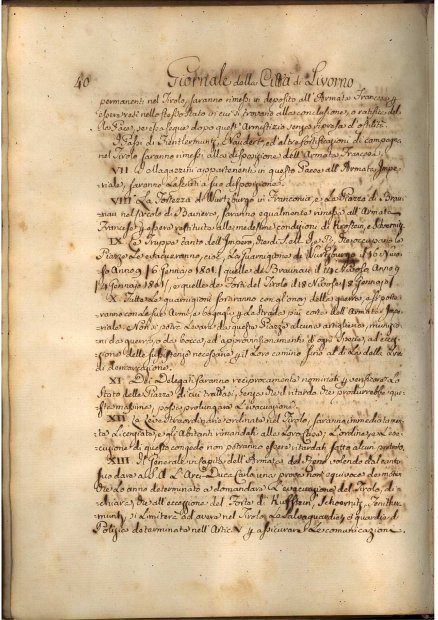 40 Giornale della Città di Livorno
permanenti nel Tirolo, saranno rimessi in deposito all'Armata Francese, p
essere resi nello stesso Stato in cui si trovano alla conclusione, e ratifica del
la Pace, se essa segue dopo quest'Armistizio senza ripresa d'ostilità.
I Passi di Finstermunz, Nauders, ed altre fortificazioni di campagna
nel Tirolo saranno rimessi alla disposizione dell'Armata Francese.
VII I Magazzini appartenenti in questo Paese all'Armata Impe-
riale, saranno lasciati a sua disposizione.
VIII La Fortezza di Wurtzburgo in Franconia, e la Piazza di Brau-
nau nel Circolo di Baviera, saranno egualmente rimesse all'Armata
Francese p essere restituite alle medesime condizioni di
IX Le Truppe tanto dell'Impero, che di S. M. I. e R. che occupano le
Piazze le evacueranno, cioè, la Guarnigione di Wurtzburgo il 16 Nevo-
so Anno 9 (6 Gennajo 1801) quella di Braunau il 14 Nevoso Anno 9
(4 Gennajo 1801), e quella de' Forti del Tirolo il 18 Nevoso (8 Gennajo)
X. Tutte le guarnigioni sortiranno cogl'onori della guerra, e si porte-
ranno con le sue Armi, e bagagli p la strada più corta dell'Armata Im-
periale. Non si potrà levare da queste Piazze alcuna artiglieria, munizio-
ni da guerra, e da bocca, ed approvisionamento d'ogni specie, ad ecce-
zione delle sussistenze necessarie p il loro camino fino al di là della linea
di demarcazione.
XI Dei Delegati saranno reciprocamente nominati p verificare lo
Stato delle Piazze di cui trattasi, senza che il ritardo che produrrebbe que-
sta missione, possa prolungare l'evacuazione.
XII Le Leve straordinarie ordinate nel Tirolo, saranno immediatamen-
te licenziate, e gli Abitanti rimandati alle loro case; L'ordine, e l'ese-
cuzione di questo congedo non potranno essere ritardati sotto alcun pretesto.
XIII Il Generale in Capo dell'Armata del Reno volendo dal canto
suo dare a S. A. l'Arci-Duca Carlo una prova non equivoca de' motivi
che lo anno determinato a domandare l'evacuazione del Tirolo, di-
chiara, che all'eccezione dei Forti di Kuffstein, Schoernitz, Finster-
muntz, si limiterà ad avere nel Tirolo, le salvaguardie, o guardie di
Polizia determinate nell'Artic. V p assicurare le comunicazioni.